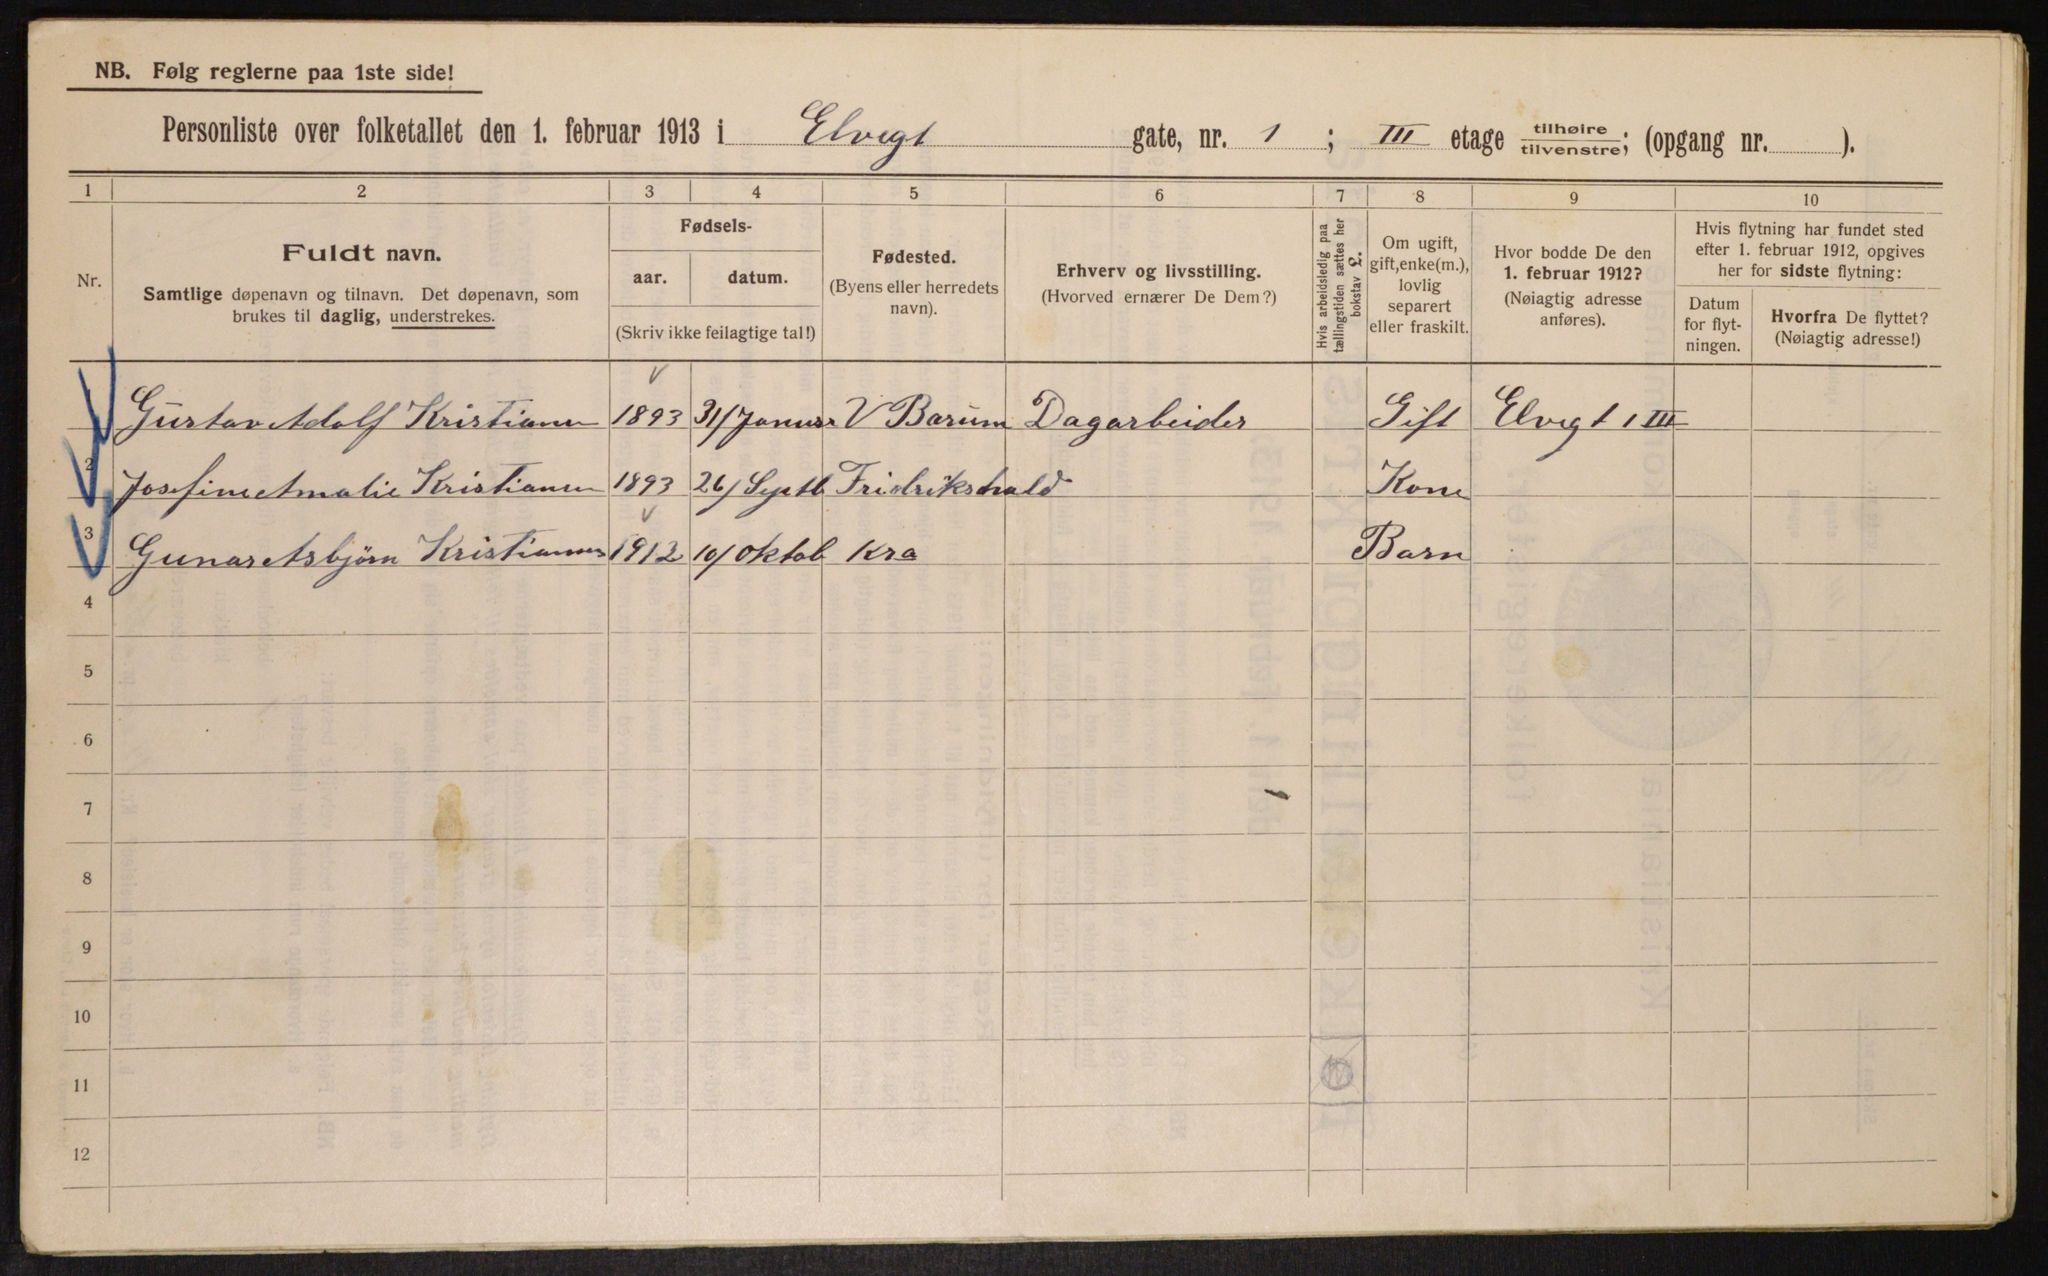 NB. Følg reglerne paa 1ste side!
Personliste over folketallet den 1. februar 1913 i Elvegt gate, nr. 1 ; III etage tilhøire/tilvenstre; (opgang nr. ).
1 2 3 4 5 6 7 8 9 10
Nr.
Fuldt navn.
Samtlige døpenavn og tilnavn. Det døpenavn, som
brukes til daglig, understrekes.
Fødsels-
aar. datum.
(Skriv ikke feilagtige tal!)
Fødested.
(Byens eller herredets
navn).
Erhverv og livsstilling.
(Hvorved ernærer De Dem?)
Hvis arbeidsledig paa
tællingstiden sættes her
bokstav L.
Om ugift,
gift, enke(m.),
lovlig
separert
eller fraskilt.
Hvor bodde De den
1. februar 1912?
(Nøiagtig adresse
anføres).
Hvis flytning har fundet sted
efter 1. februar 1912, opgives
her for sidste flytning:
Datum
for flyt-
ningen.
Hvorfra De flyttet?
(Nøiagtig adresse!)
Gustav Adolf Kristiansen 1893 31/Januar V Barum Dagarbeider Gift Elvegt 1 III
2 Josefine Amalie Kristiansen 1893 26/Septb Fridrikshald Kone
3 Gunar Asbjörn Kristiansen 1912 10/Oktob Kra Barn
4
5
6
7
8
9
10
11
12